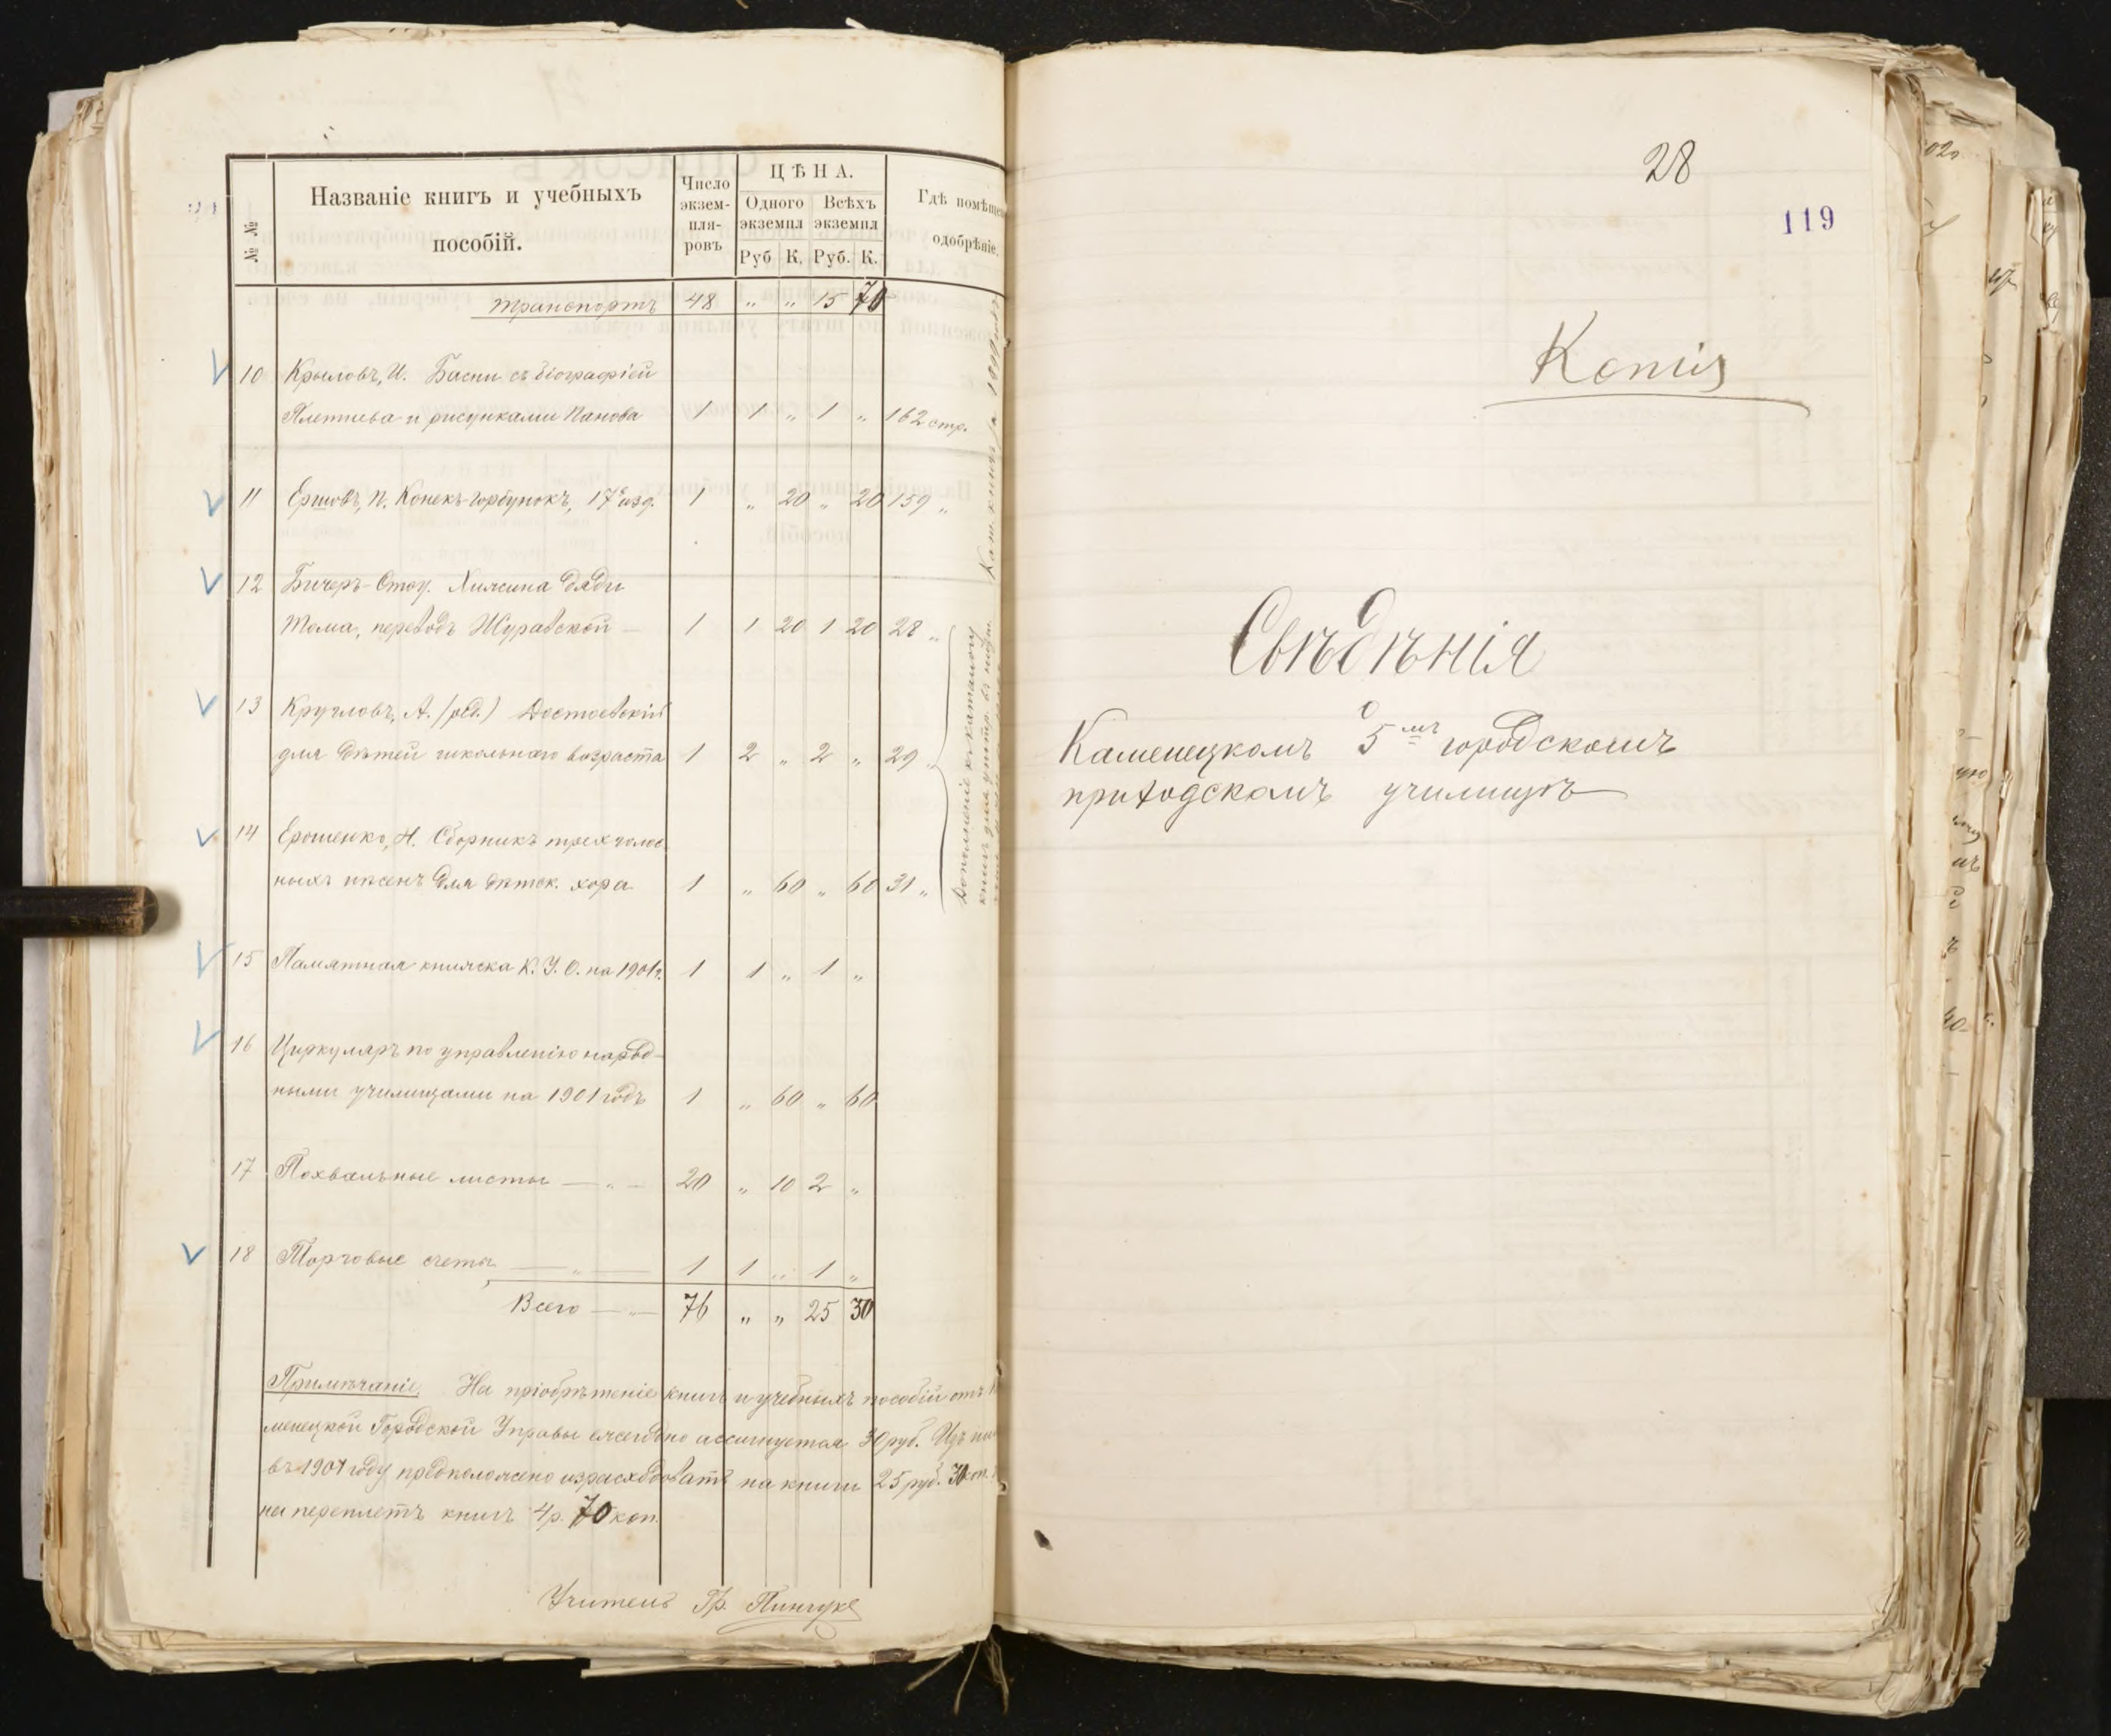 № №
Названіе книгъ и учебныхъ
пособій.
Число
экзем-
пля-
ровъ
ЦѢНА.
Одного
экземпл
Всѣхъ
экземпл
Руб К. Руб. К.
Гдѣ помѣщен
одобрѣніе.
Транспортъ 48 „ „ 15 70
10 Крыловъ, И. Басни съ біографіей
Плетнева и рисунками Панова 1 1 „ 1 „ 162 стр.
11 Ершовъ, П. Конекъ-Горбунокъ, 17е изд. 1 „ 20 „ 20 159 „
12 Бичеръ-Стоу. Хижина дяди
Тома, переводъ Журавской — 1 1 20 1 20 28 „
13 Кругловъ, А. (ред.) Достоевскій
для дѣтей школьнаго возраста 1 2 „ 2 „ 29 „
14 Ерошенко, Н. Сборникъ трехголос
ныхъ пѣсенъ для дѣтск. хора 1 „ 60 „ 60 31 „
15 Памятная книжка К. У. О. на 1901г. 1 1 „ 1 „
16 Циркуляръ по управленію народ-
ными училищами на 1901 годъ 1 „ 60 „ 60
17 Похвальные листы — „ — 20 „ 10 2 „
18 Торговые счеты — „ — 1 1 „ 1 „
Всего — „ — 76 „ „ 25 30
Примѣчаніе. На пріобрѣтеніе книгъ и учебныхъ пособій отъ
менецкой Городской Управы ежегодно ассигнуется 30 руб. Изъ
въ 1901 году предположено израсходовать на книги 25 руб. 30 коп.
на переплетъ книгъ 4 р. 70 коп.
Учитель Гр. Пинчукъ
Дополненіе къ каталогу
книгъ для
Кат. книгъ за 1899
28
119
Копія
Свѣдѣнія
о
Каменецкомъ 5мъ городскомъ
приходскомъ училищѣ